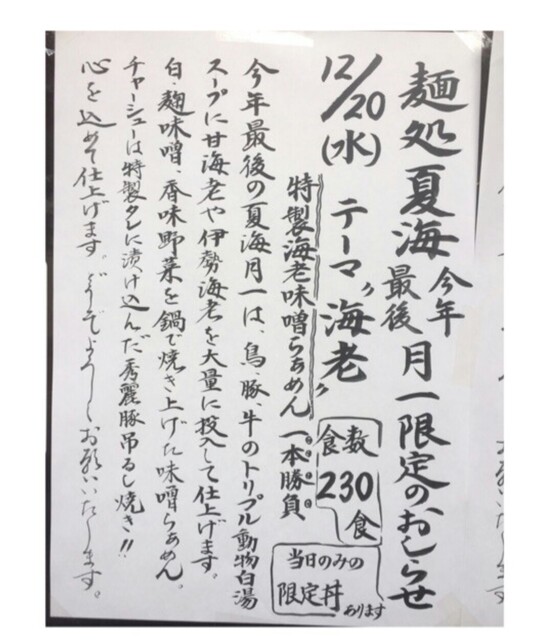 麺処夏海 今年最後 月一限定のおしらせ
12/20(水) テーマ〝海老〟
食数 230食
特製海老味噌らぁめん 一本勝負
当日のみの
限定丼あります
今年最後の夏海月一は、鳥、豚、牛のトリプル動物白湯
スープに甘海老や伊勢海老を大量に投入して仕上げます。
白・麹味噌、香味野菜を鍋で焼き上げた味噌らぁめん。
チャーシューは特製タレに漬け込んだ秀麗豚吊るし焼き!!
心を込めて仕上げます。どうぞよろしくお願いいたします。